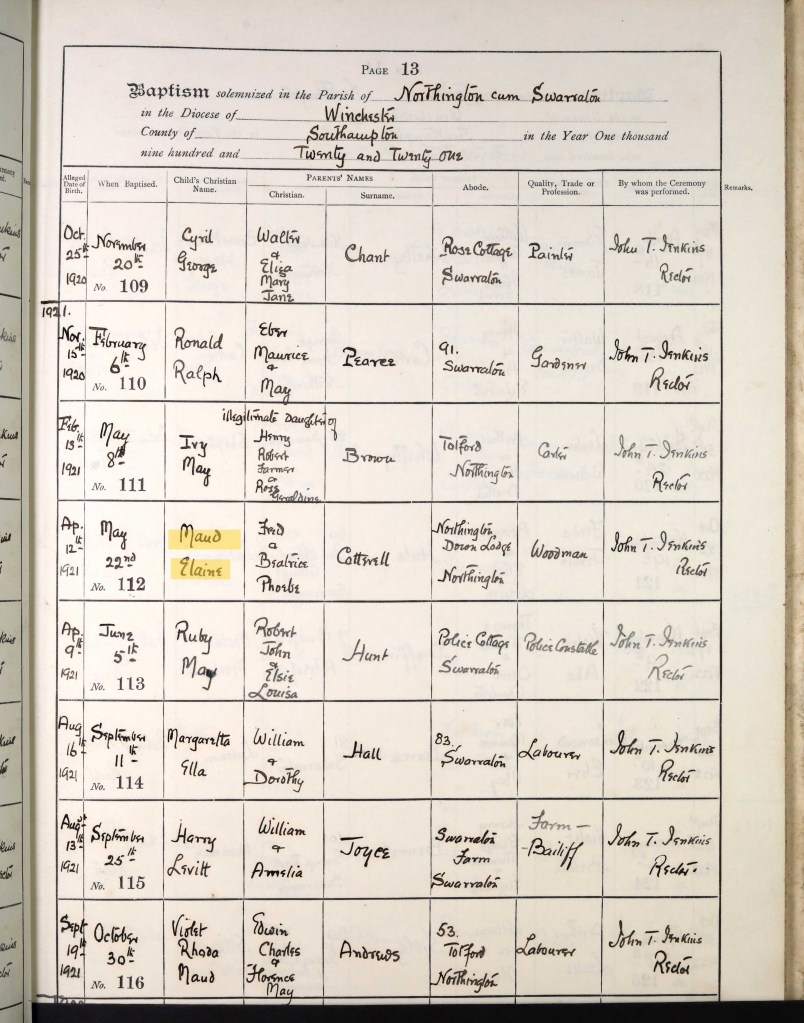 PAGE 13
Baptism solemnized in the Parish of Northington cum Swarraton
in the Diocese of Winchester
County of Southampton in the Year One thousand
nine hundred and Twenty and Twenty one
Alleged Date of Birth. When Baptised. Child's Christian Name. PARENTS' NAMES Christian. Surname. Abode. Quality, Trade or Profession. By whom the Ceremony was performed. Remarks.
Oct. 25th 1920 November 20th No 109 Cyril George Walter & Eliza Mary Jane Chant Rose Cottage Swarraton Painter John T. Jenkins Rector
1921.
Nov. 15th 1920 February 6th No. 110 Ronald Ralph Eber Maurice & May Pearce 91. Swarraton Gardener John T. Jenkins Rector
Feb. 13th 1921 May 8th No. 111 Ivy May illegitimate Daughter of Henry Robert Farmer & Rose Geraldine Brown Totford Northington Carter John T. Jenkins Rector
Ap. 12th 1921 May 22nd No. 112 Maud Elaine Fred & Beatrice Phoebe Cotterell Northington Down Lodge Northington Woodman John T. Jenkins Rector
Ap. 9th 1921 June 5th No. 113 Ruby May Robert John & Elsie Louisa Hunt Police Cottage Swarraton Police Constable John T. Jenkins Rector
Aug 16th 1921 September 11th No. 114 Margaretta Ella William & Dorothy Hall 83. Swarraton Labourer John T. Jenkins Rector
Augst 13th 1921 September 25th No. 115 Harry Levitt William & Amelia Joyce Swarraton Farm Swarraton Farm- Bailiff John T. Jenkins Rector.
Sept 19th 1921 October 30th No. 116 Violet Rhoda Maud Edwin Charles & Florence May Andrews 53. Totford Northington Labourer John T. Jenkins Rector